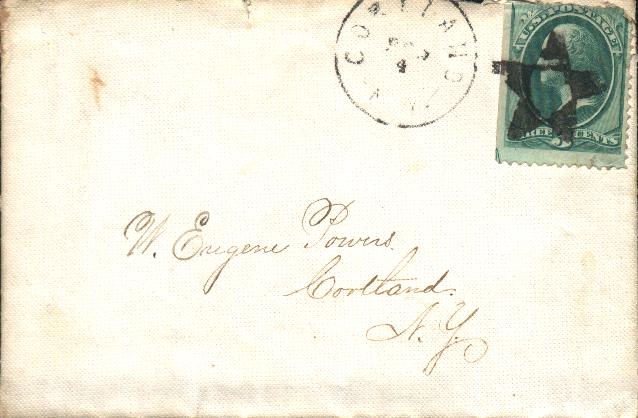 CORTLAND
4
N.Y.
U.S. POSTAGE
THREE 3 CENTS
W. Eugene Powers
Cortland.
N.Y.